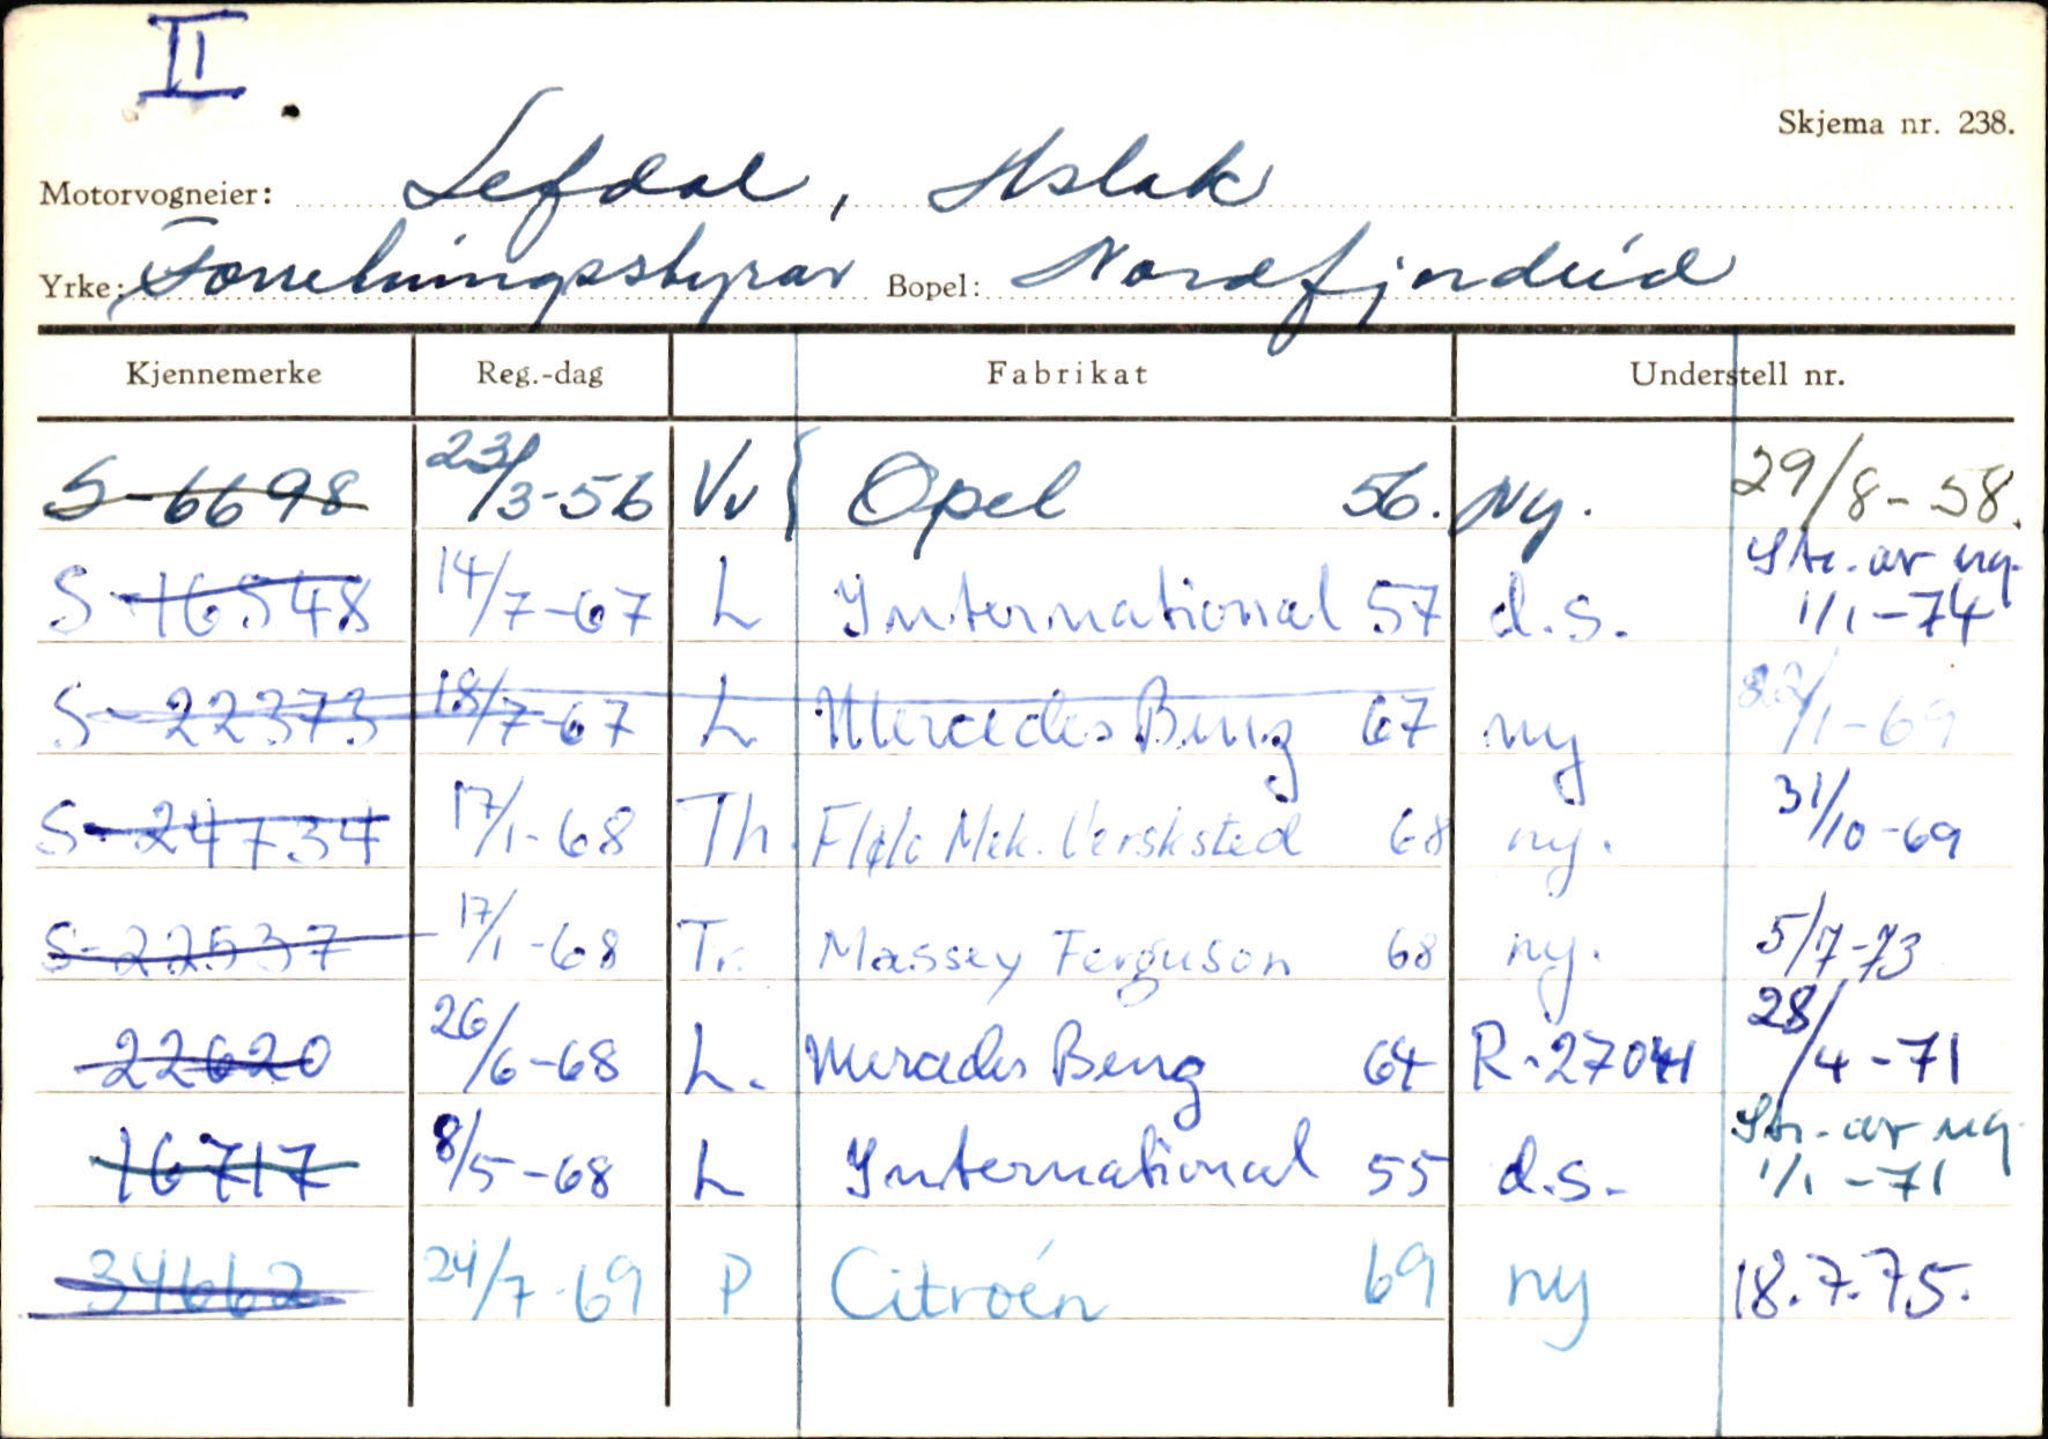 II
Skjema nr. 238.
Motorvogneier: Lefdal, Aslak
Yrke: Forretningsstyrar Bopel: Nordfjordeid
Kjennemerke Reg.-dag Fabrikat Understell nr.
S-6698 23/3-56 Vv { Opel 56. Ny. 29/8-58.
S-16548 14/7-67 L International 57 d.s. Str. av reg. 1/1-74
S-22373 18/7-67 L Mercedes Benz 67 ny 22/1-69
S-24734 17/1-68 Th. FløLo Mek. Verksted 68 ny. 31/10-69
S-22537 17/1-68 Tr. Massey Ferguson 68 ny. 5/7-73
22620 26/6-68 L. Mercedes Benz 64 R-27041 28/4-71
16717 8/5-68 L International 55 d.s. Str. av reg. 1/1-71
34662 24/7-69 P Citroén 69 ny 18.7.75.